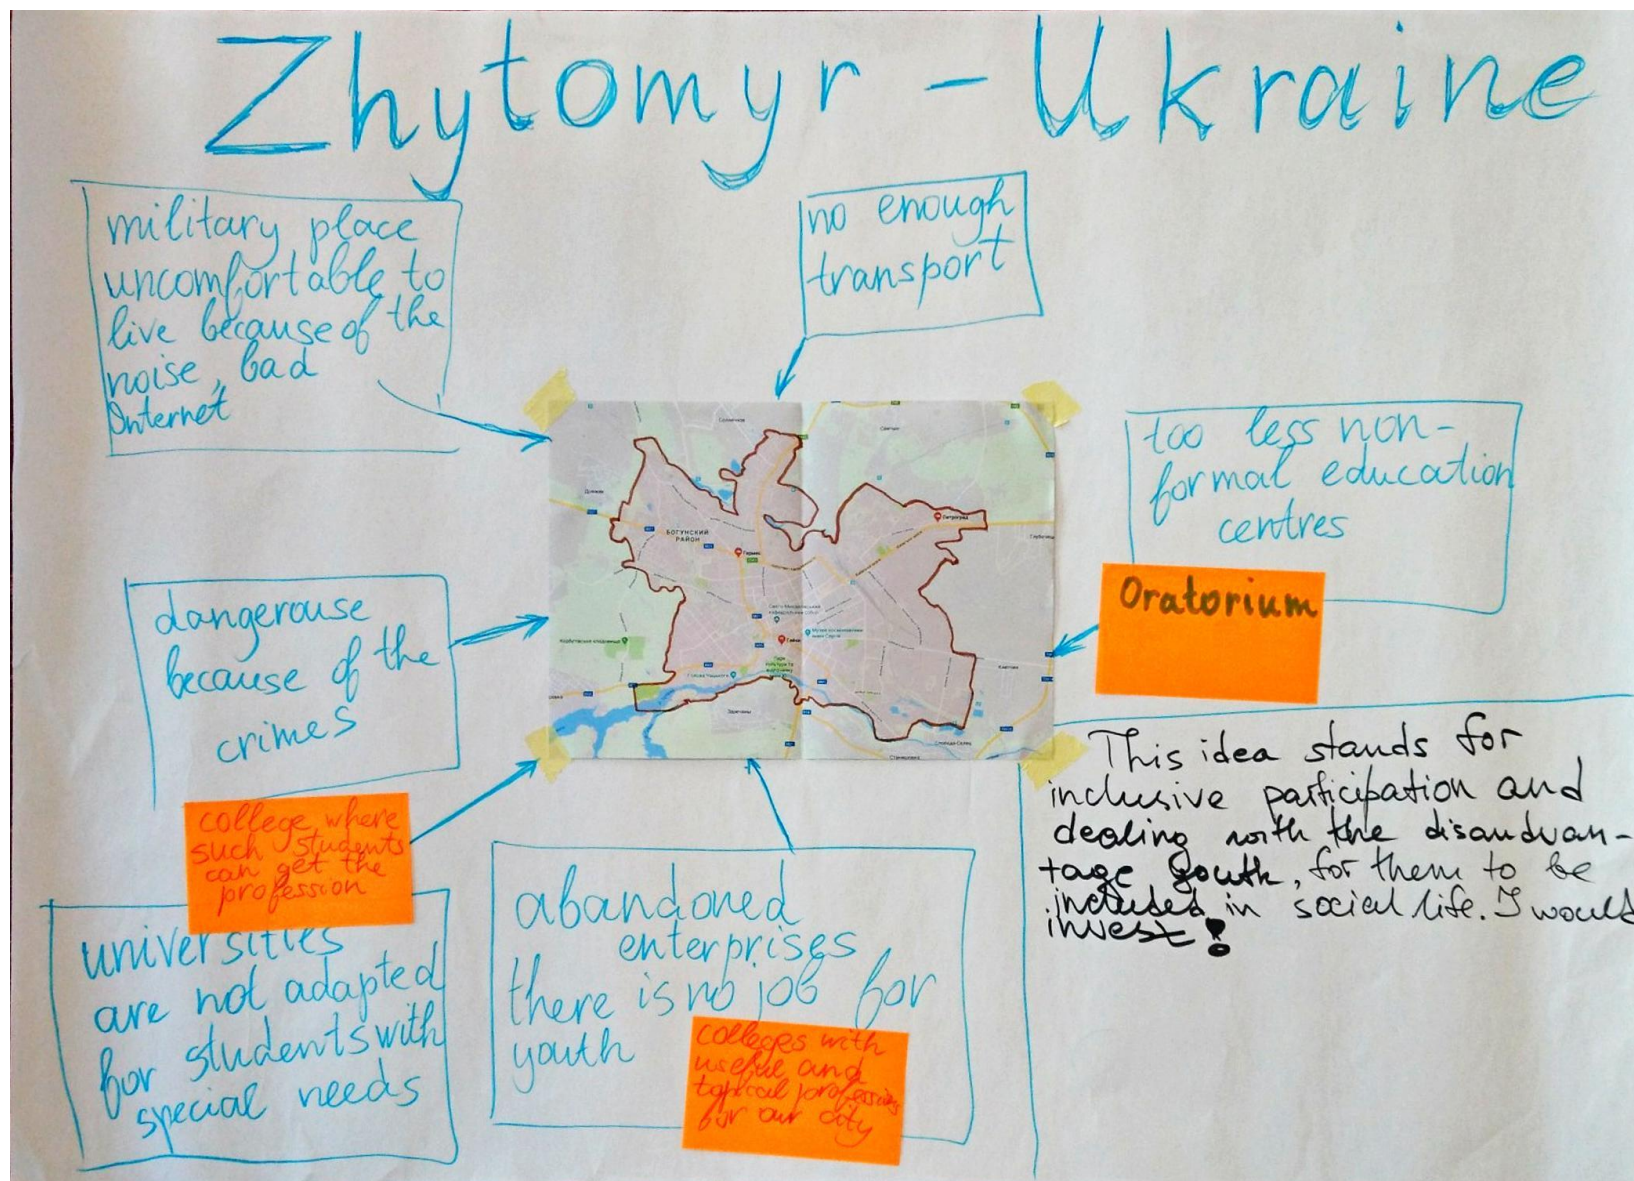 Zhytomyr - Ukraine
military place
uncomfortable to
live because of the
noise, bad
Internet
no enough
transport
too less non-
formal education
centres
Oratorium
dangerouse
because of the
crimes
college where
such students
can get the
profession
universities
are not adapted
for students with
special needs
abandoned
enterprises
there is no job for
youth
colleges with
useful and
topical professions
for our city
This idea stands for
inclusive participation and
dealing with the disandvan-
tage youth, for them to be
included in social life. I would
invest!
БОГУНСКИЙ
РАЙОН